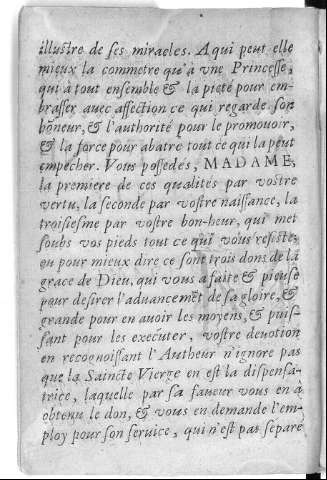 illuſtre de ſes miracles. A qui peut elle
mieux la commetre qu'à vne Princeſſe,
qui à tout enſemble & la pieté pour em-
braſſer auec affection ce qui regarde ſon
hõneur, & l'authorité pour le promouoir,
& la force pour abatre tout ce qui la peut
empécher. Vous poſſedés, MADAME,
la premiere de ces qualités par voſtre
vertu, la ſeconde par voſtre naiſſance, la
troiſieſme par voſtre bon-heur, qui met
ſoubs vos pieds tout ce qui vous reſiſte,
ou pour mieux dire ce ſont trois dons de la
grace de Dieu, qui vous a faite & pieuſe
pour deſirer l'aduancemẽt de ſa gloire, &
grande pour en auoir les moyens, & puiſ-
ſant pour les executer, voſtre deuotion
en recognoiſſant l'Autheur n'ignore pas
que la Saincte Vierge en eſt la diſpenſa-
trice, laquelle par ſa faueur vous en à
obtenu le don, & vous en demande l'em-
ploy pour ſon ſeruice, qui n'eſt pas ſeparé